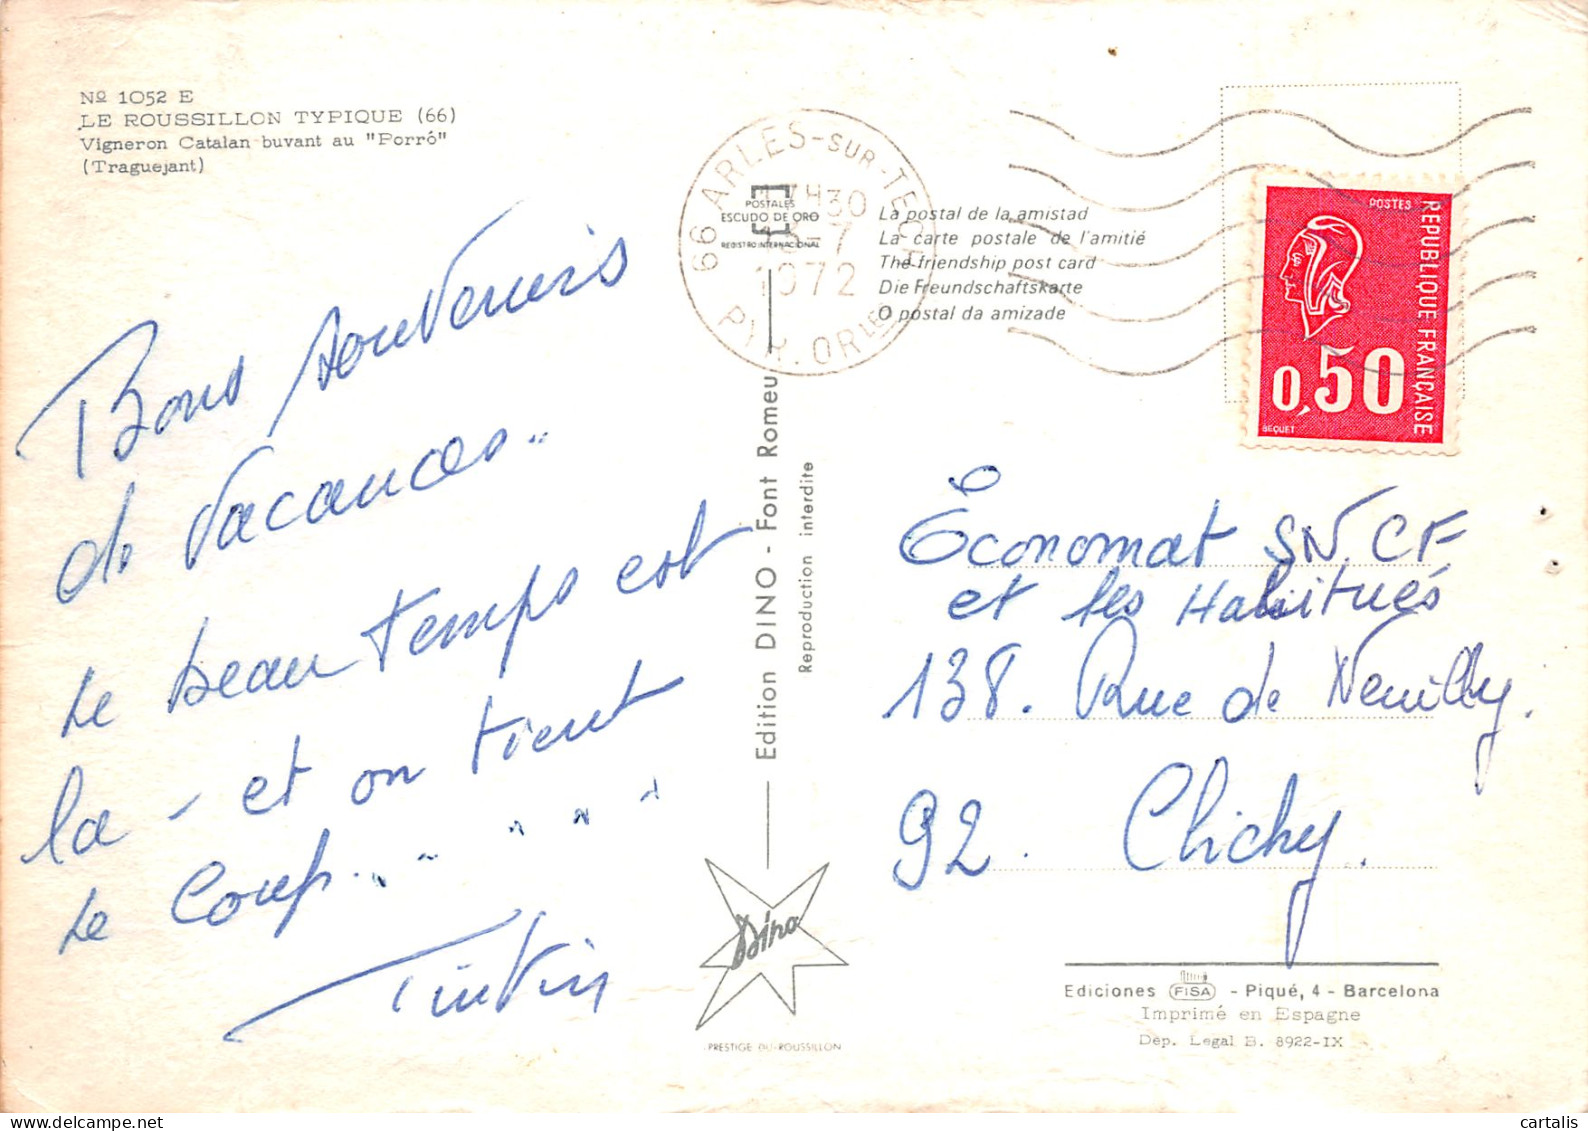 Nº 1052 E
LE ROUSSILLON TYPIQUE (66)
Vigneron Catalan buvant au "Porró"
(Traguejant)
Bons souvenirs
de vacances..
le beau temps est
la - et on tient
le coup......
Tintin
66 ARLES-SUR-TECH
17H30
-7
1972
PYR. ORles
POSTALES
ESCUDO DE ORO
REGISTRO INTERNACIONAL
La postal de la amistad
La carte postale de l'amitié
The friendship post card
Die Freundschaftskarte
O postal da amizade
Edition DINO - Font Romeu
Reproduction interdite
Dino
PRESTIGE DU ROUSSILLON
POSTES
RÉPUBLIQUE FRANÇAISE
0,50
BEQUET
Économat SNCF
et les Habitués
138. Rue de Neuilly.
92. Clichy.
Ediciones FISA - Piqué, 4 - Barcelona
Imprimé en Espagne
Dep. Legal B. 8922-IX
cartalis